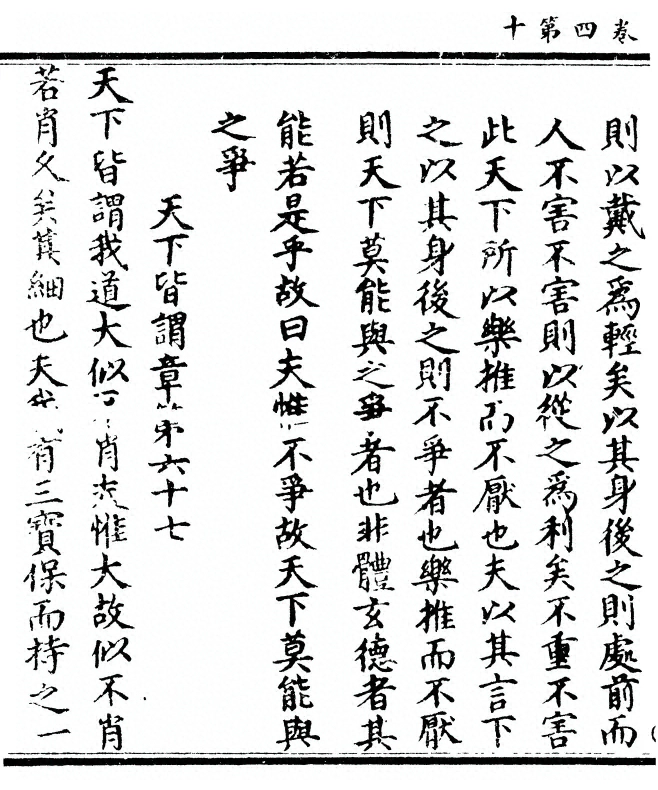 卷四第十
則以戴之爲輕矣以其身後之則處前而
人不害不害則以從之爲利矣不重不害
此天下所以樂推而不厭也夫以其言下
之以其身後之則不爭者也樂推而不厭
則天下莫能與之爭者也非體玄德者其
能若是乎故曰夫惟不爭故天下莫能與
之爭
天下皆謂章第六十七
天下皆謂我道大似不肖夫惟大故似不肖
若肖久矣其細也夫我有三寶保而持之一